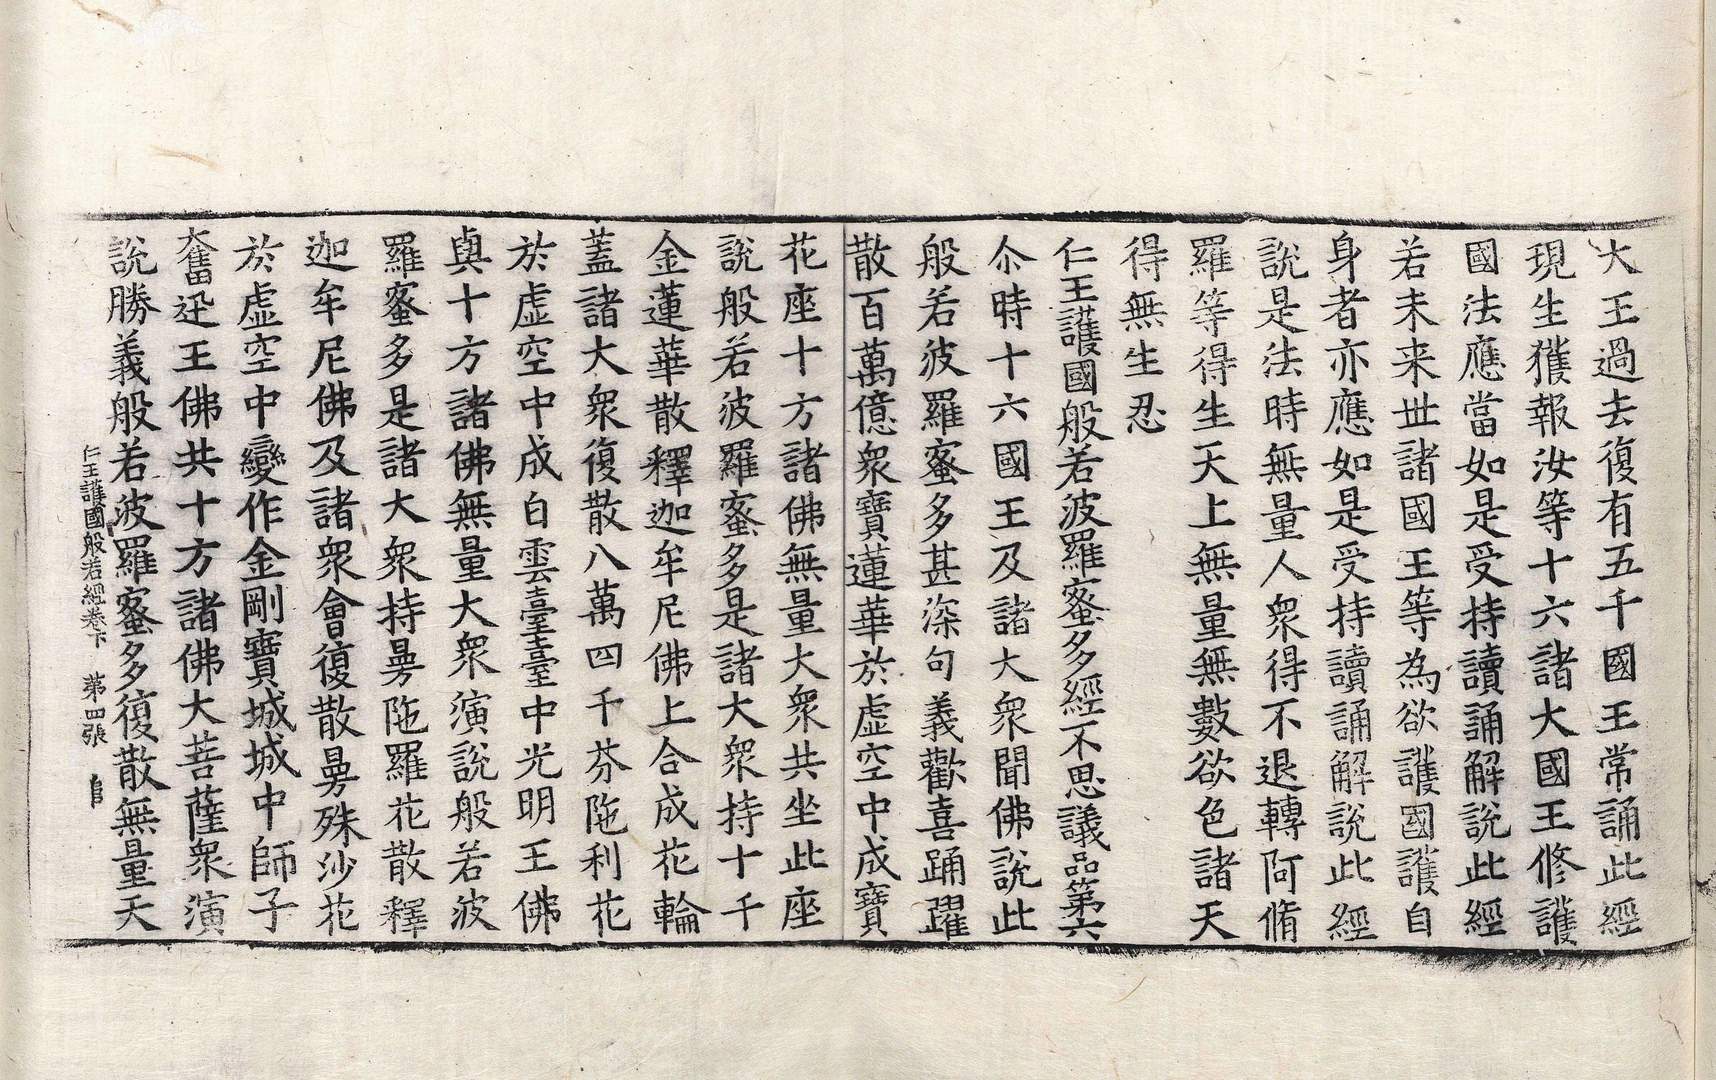 大王過去復有五千國王常誦此經
現生獲報汝等十六諸大國王修護
國法應當如是受持讀誦解說此經
若未来世諸國王等為欲護國護自
身者亦應如是受持讀誦解說此經
說是法時無量人衆得不退轉阿脩
羅等得生天上無量無數欲色諸天
得無生忍
仁王護國般若波羅蜜多經不思議品第六
尒時十六國王及諸大衆聞佛說此
般若波羅蜜多甚深句義歡喜踊躍
散百萬億衆寶蓮華於虛空中成寶
花座十方諸佛無量大衆共坐此座
說般若波羅蜜多是諸大衆持十千
金蓮華散釋迦牟尼佛上合成花輪
蓋諸大衆復散八萬四千芬陁利花
於虛空中成白雲臺臺中光明王佛
與十方諸佛無量大衆演說般若波
羅蜜多是諸大衆持曼陁羅花散釋
迦牟尼佛及諸衆會復散曼殊沙花
於虛空中變作金剛寶城城中師子
奮迅王佛共十方諸佛大菩薩衆演
說勝義般若波羅蜜多復散無量天
仁王護國般若經卷下　第四張